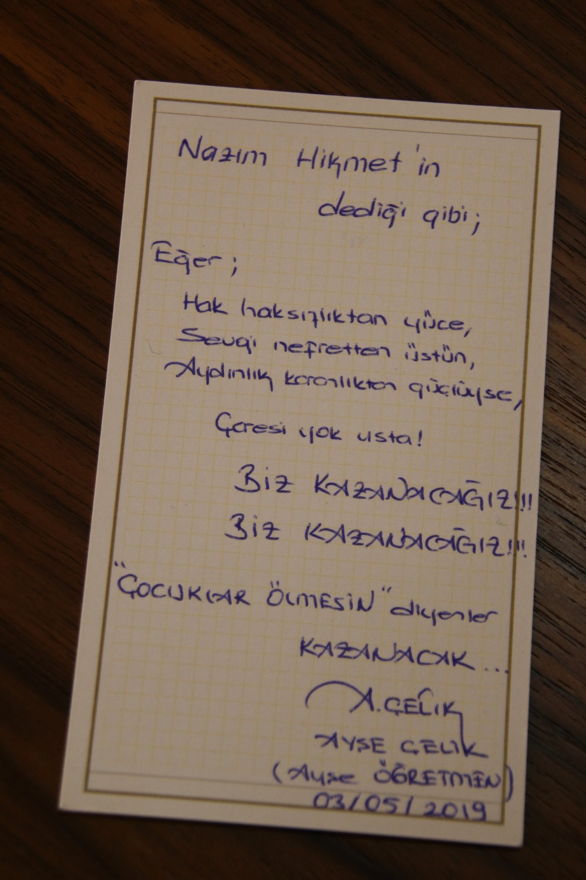 Nazım Hikmet'in
dediği gibi;
Eğer;
Hak haksızlıktan yüce,
Sevgi nefretten üstün,
Aydınlık karanlıktan güçlüyse,
Çaresi yok usta!
BİZ KAZANACAĞIZ!!!
BİZ KAZANACAĞIZ!!!
"ÇOCUKLAR ÖLMESİN" diyenler
KAZANACAK...
A.ÇELİK
AYŞE ÇELİK
(Ayşe ÖĞRETMEN)
03/05/2019